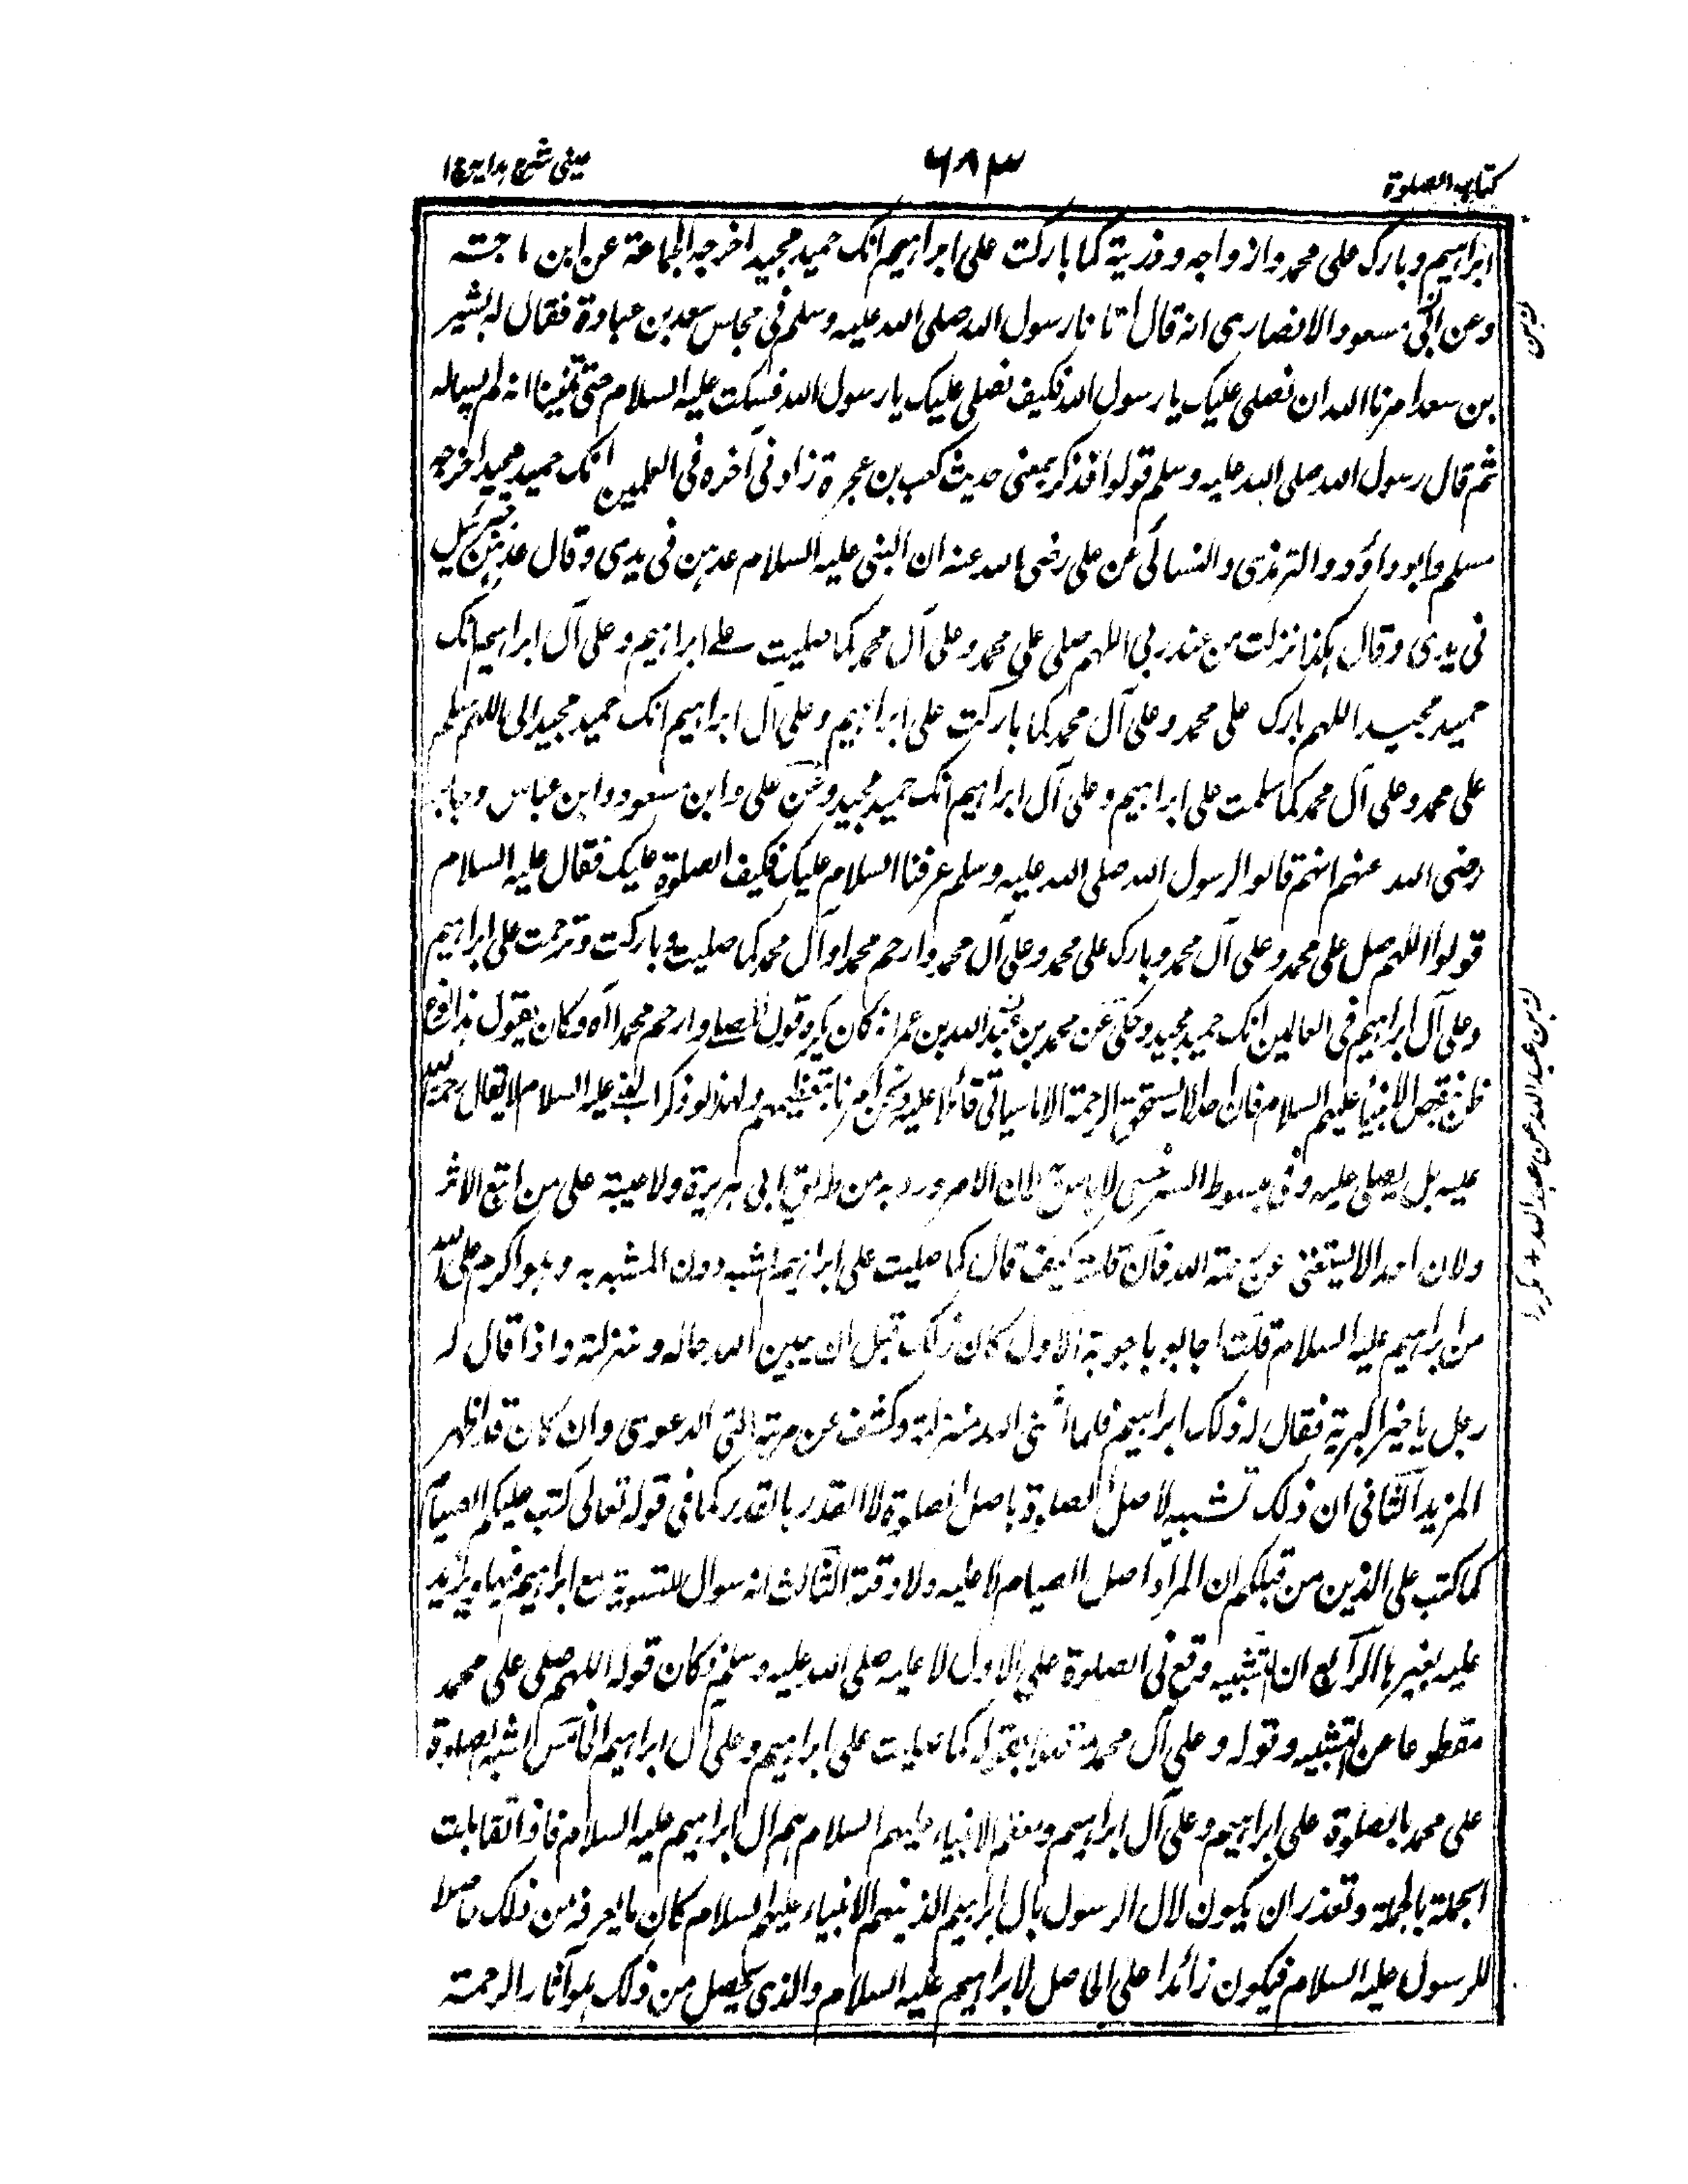 كتاب الصلوة
٦٨٣
عينى شرح هدايه ج ١
ابراهيم وبارك على محمد وازواجه وذريته كما باركت على ابراهيم انك حميد مجيد اخرجه الجماعة عن ابن ماجته
وعن ابى مسعود الانصارى انه قال اتانا رسول الله صلى الله عليه وسلم فى مجلس سعد بن عبادة فقال له بشير
بن سعد امرنا الله ان نصلى عليك يا رسول الله فكيف نصلى عليك يا رسول الله فسكت عليه السلام حتى تمنينا انه لم يساله
ثم قال رسول الله صلى الله عليه وسلم قولوا فذكر بمعنى حديث كعب بن عجرة زاد فى آخره فى العلمين انك حميد مجيد اخرجه
مسلم وابو داؤد والترمذى والنسائى عن على رضى الله عنه ان النبى عليه السلام عدهن فى يدى وقال عدهن جبرئيل
فى يدى وقال هكذا نزلت من عند ربى اللهم صلى على محمد وعلى آل محمد كما صليت على ابراهيم وعلى آل ابراهيم انك
حميد مجيد اللهم بارك على محمد وعلى آل محمد كما باركت على ابراهيم وعلى آل ابراهيم انك حميد مجيد الى اللهم سلم
على محمد وعلى آل محمد كما سلمت على ابراهيم وعلى آل ابراهيم انك حميد مجيد وعن على وابن مسعود وابن عباس وجابر
رضى الله عنهم انهم قالوا لرسول الله صلى الله عليه وسلم عرفنا السلام عليك فكيف الصلوة عليك فقال عليه السلام
قولوا اللهم صل على محمد وعلى آل محمد وبارك على محمد وعلى آل محمد وارحم محمدا وآل محمد كما صليت وباركت وترحمت على ابراهيم
وعلى آل ابراهيم فى العالمين انك حميد مجيد وحكى عن محمد بن عبد الله بن عمر انه كان يكره قول المصلے وارحم محمدا الآه وكان يقول هذا نوع
ظن بتقصير الانبياء عليهم السلام فان احدا لا يستحق الرحمة الا ما سياتى قائلا عليه ونحن امرنا بتعظيمهم ولهذا لو ذكر النبے عليه السلام لا يقال رحمة الله
عليه بل يصلى عليه وفى مبسوط السرخسى لا باس به لان الامر ورد به من طريق ابى هريرة ولا عيبة على من اتبع الاثر
ولان احدا لا يستغنى عن رحمة الله فان قلت كيف قال كما صليت على ابراهيم المشبه دون المشبه به وهو اكرم على الله
من ابراهيم عليه السلام قلت اجابوا باجوبة الاول كان ذلك قبل ان يبين الله حاله ومنزلته واذا قال له
رجل يا خير البرية فقال له ذلك ابراهيم فلما اثنى الله منزلته وكشف عن مرتبته التى الدعوى وان كان قد اظهر
المزيد الثانى ان ذلك تشبيه لاصل الصلوة باصل الصلوة لا القدر بالقدر كما فى قوله تعالى كتب عليكم الصيام
كما كتب على الذين من قبلكم ان المراد اصل الصيام لا عليه ولا وقته الثالث انه سوال للتسوية مع ابراهيم فيها ويزيد
عليه بغيرها الرابع ان التشبيه وقع فى الصلوة على الاول لا عليه صلى الله عليه وسلم فكان قوله اللهم صلى على محمد
مقطوعا عن التشبيه وقوله وعلى آل محمد متصلا بقوله كما صليت على ابراهيم وعلى آل ابراهيم الخامس اشبه الصلوة
على محمد بالصلوة على ابراهيم وعلى آل ابراهيم ومعظم الانبياء عليهم السلام هم ال ابراهيم عليه السلام فاذا تقابلت
الجملة بالجملة وتعذر ان يكون لال الرسول بال ابراهيم الذينهم الانبياء عليهم السلام كان ما يعرفه من ذلك حاصلا
للرسول عليه السلام فيكون زائدا على الحاصل لابراهيم عليه السلام والذى يحصل من ذلك هو آثار الرحمة